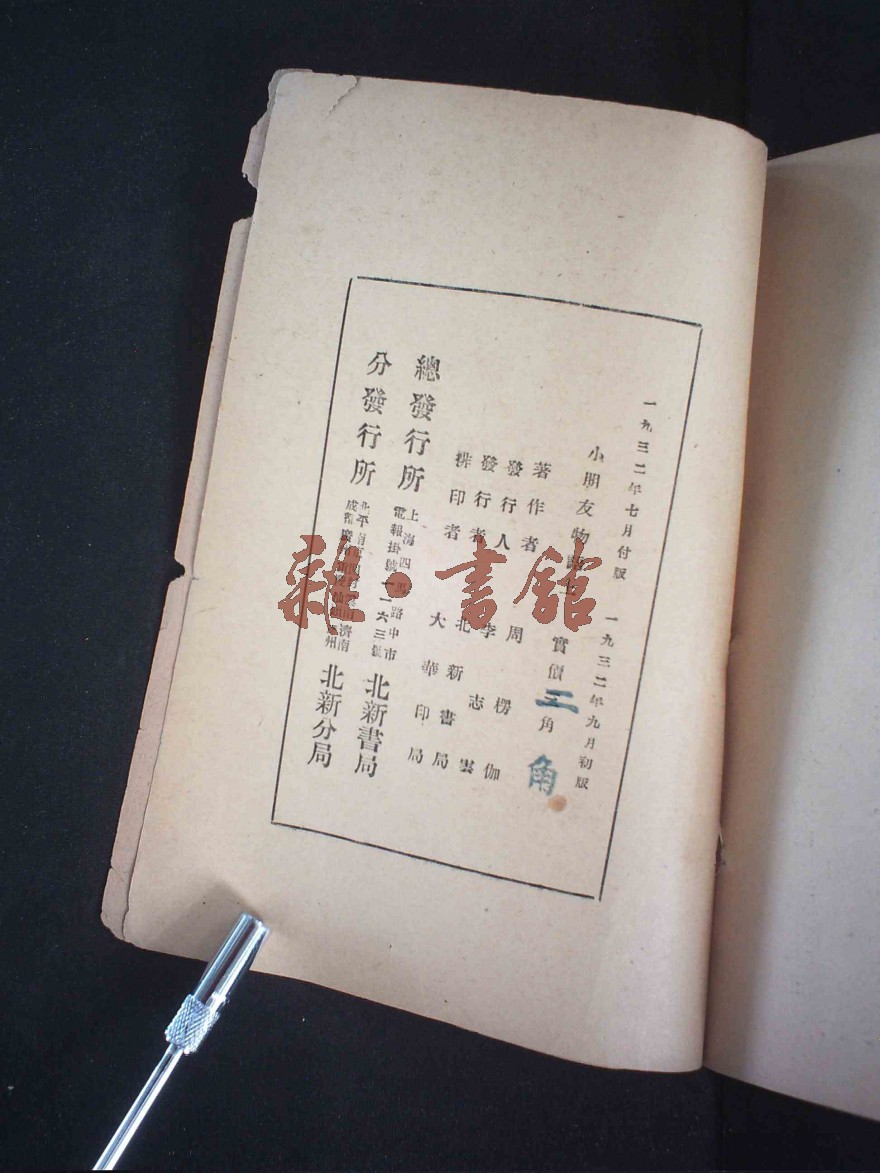 一九三二年七月付版　一九三二年九月初版
小朋友物語
實價三角
角
著作者　周楞伽
發行人　李志雲
發行者　北新書局
排印者　大華印局
總發行所　上海四馬路中市　電報掛號一一六三號　北新書局
分發行所　北平　成都　南京　重慶　濟南　州　北新分局
雜·書館